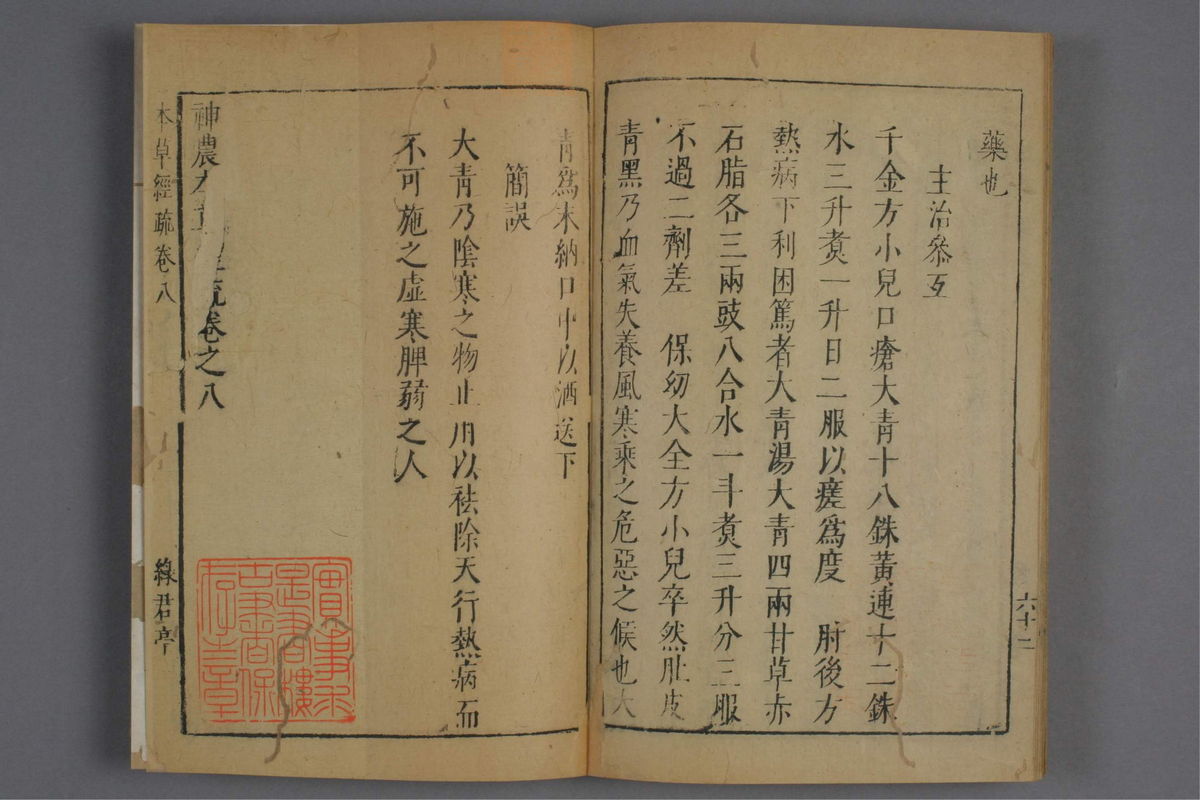 藥也
主治叅互
千金方小兒口瘡大青十八銖黃連十二銖
水三升煑一升日二服以瘥爲度　肘後方
熱病下利困篤者大青湯大青四兩甘草赤
石脂各三兩豉八合水一斗煑三升分三服
不過二劑差　保幼大全方小兒卒然肚皮
青黑乃血氣失養風寒乘之危惡之候也大
六十二
青爲末納口中以酒送下
簡誤
大青乃陰寒之物止用以袪除天行熱病而
不可施之虛寒脾弱之人
神農本草經疏卷之八
本草經疏卷八
綠君亭